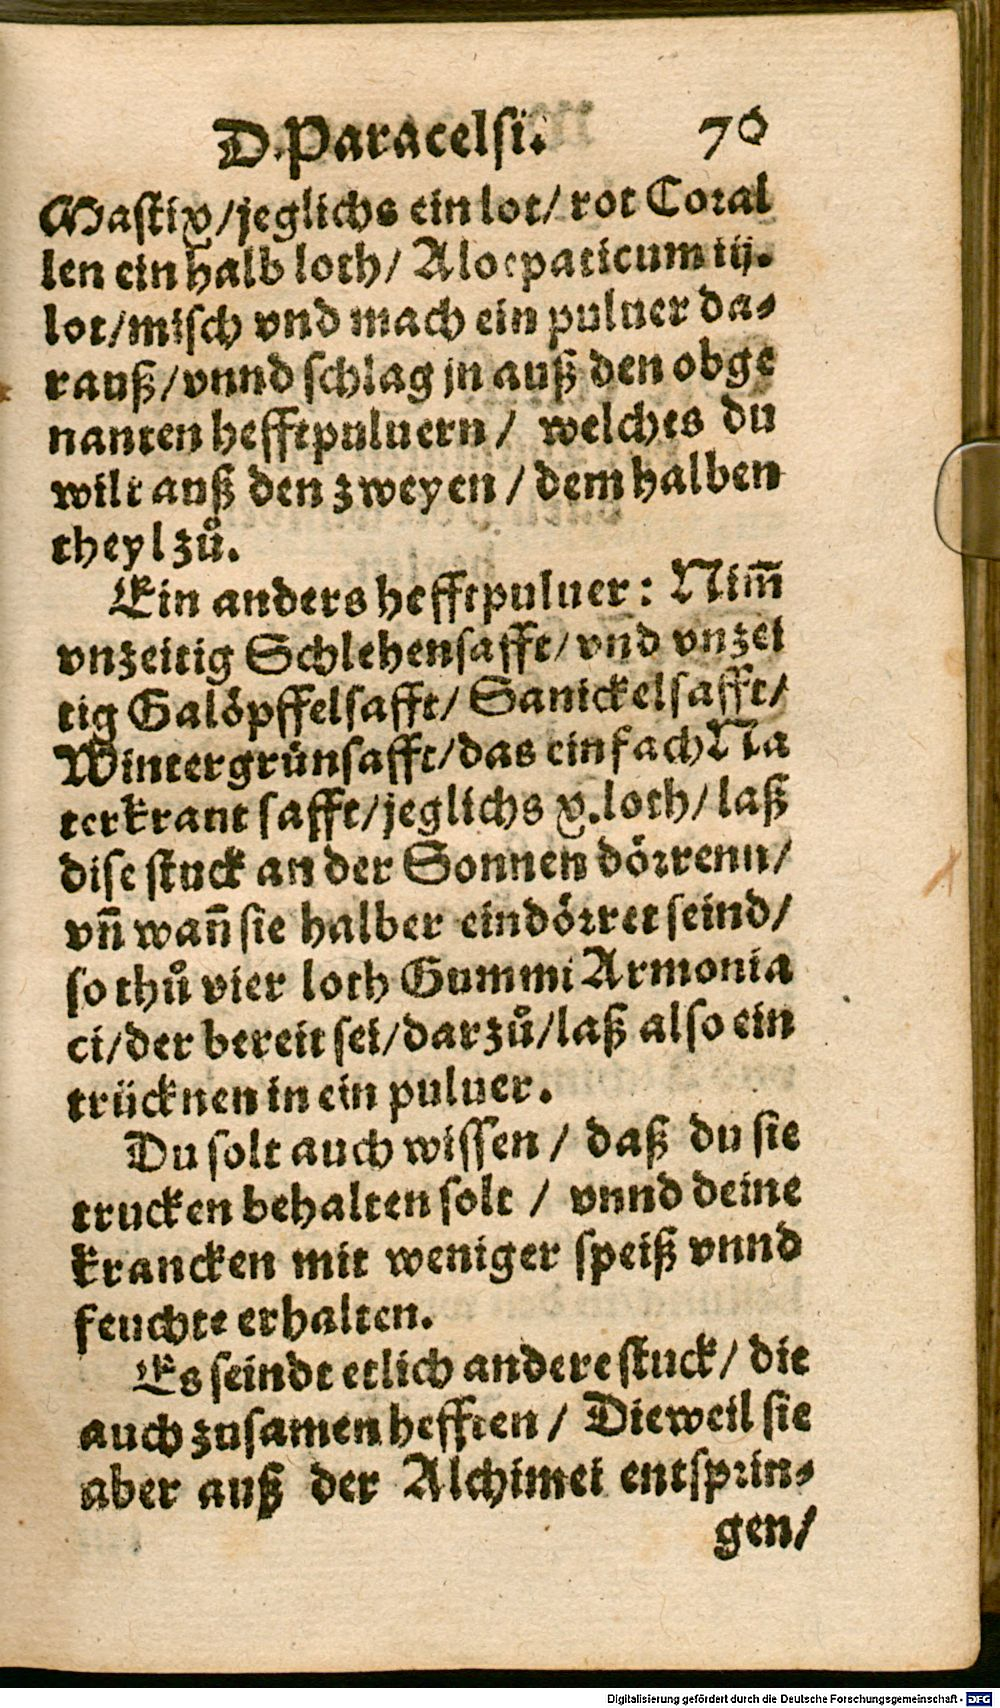 D. Paracelsi. 70
Mastix/jeglichs ein lot/ rot Coral
len ein halb loth/ Aloepaticum iij.
lot/misch vnd mach ein puluer da⸗
rauß/vnnd schlag jn auß den obge
nanten hefftpuluern / welches du
wilt auß den zweyen / dem halben
theyl zů.
Ein anders hefftpuluer: Nim̄
vnzeitig Schlehensafft/ vnd vnzei
tig Galöpffelsafft/ Sanickelsafft/
Wintergrünsafft/das einfach Na
terkrant safft/jeglichs x.loth/ laß
dise stuck an der Sonnen dörrenn/
vn̄ wan̄ sie halber eindörret seind/
so thů vier loth Gummi Armonia
ci/der bereit sei/darzů/laß also ein
trücknen in ein puluer.
Du solt auch wissen / daß du sie
trucken behalten solt / vnnd deine
krancken mit weniger speiß vnnd
feuchte erhalten.
Es seindt etlich andere stuck/ die
auch zusamen hefften / Dieweil sie
aber auß der Alchimei entsprin⸗
gen/
Digitalisierung gefördert durch die Deutsche Forschungsgemeinschaft - DFG